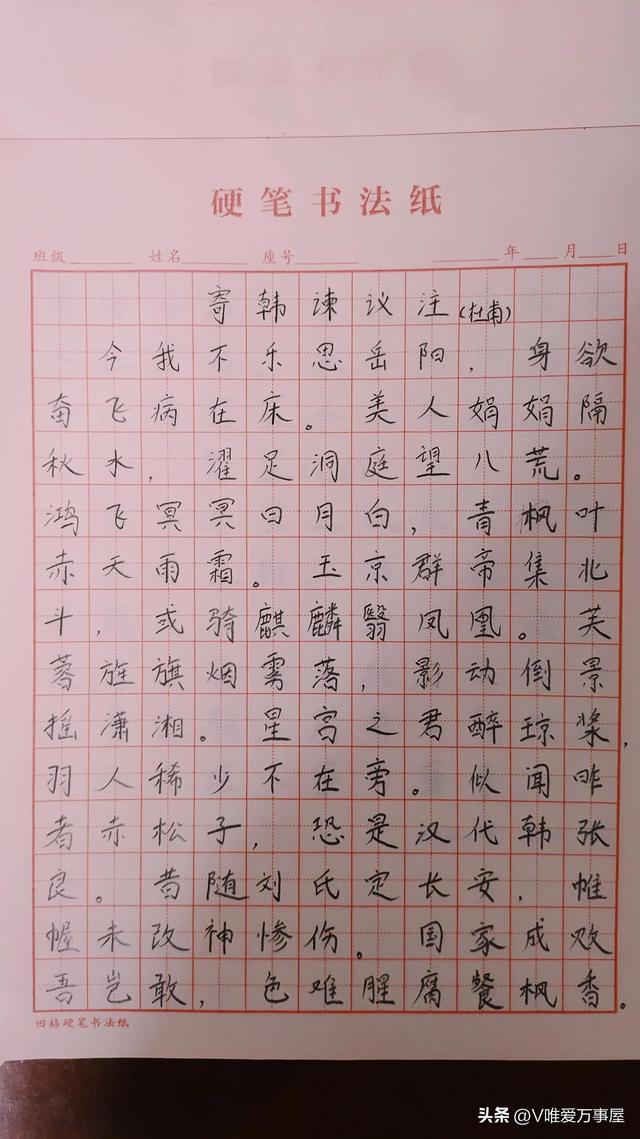 硬笔书法纸
班级 姓名 座号 年 月 日
寄韩谏议注(杜甫)
今我不乐思岳阳,身欲
奋飞病在床。美人娟娟隔
秋水,濯足洞庭望八荒。
鸿飞冥冥日月白,青枫叶
赤天雨霜。玉京群帝集北
斗,或骑麒麟翳凤凰。芙
蓉旌旗烟雾落,影动倒景
摇潇湘。星宫之君醉琼浆,
羽人稀少不在旁。似闻昨
者赤松子,恐是汉代韩张
良。昔随刘氏定长安,帷
幄未改神惨伤。国家成败
吾岂敢,色难腥腐餐枫香。
田格硬笔书法纸
头条 @V唯爱万事屋